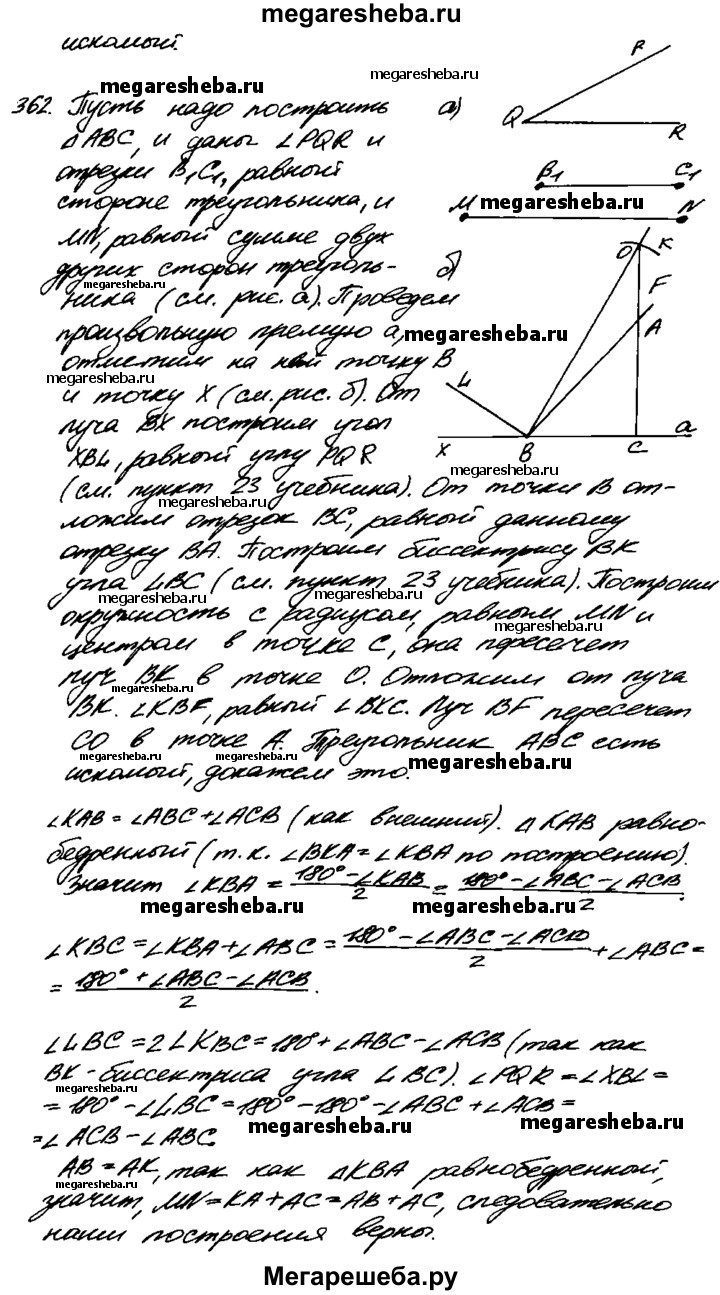 megaresheba.ru
искомый.
megaresheba.ru
megaresheba.ru
362. Пусть надо построить
△ABC, и даны ∠PQR и
отрезки B₁C₁, равный
стороне треугольника, и
MN, равный сумме двух
других сторон треуголь-
ника (см. рис. а). Проведем
произвольную прямую a,
отметим на ней точку B
и точку X (см. рис. б). От
луча BX построим угол
XBL, равный углу PQR
(см. пункт 23 учебника). От точки B от-
ложим отрезок BC, равный данному
отрезку BA. Построим биссектрису BK
угла LBC (см. пункт 23 учебника). Построим
окружность с радиусом, равным MN и
центром в точке C, она пересечет
луч BK в точке O. Отложим от луча
BK. ∠KBF, равный ∠BKC. Луч BF пересечет
CO в точке A. Треугольник ABC есть
искомый, докажем это.
а)
P
Q
R
B₁
C₁
M
N
megaresheba.ru
б)
O
K
F
A
L
X
B
C
a
megaresheba.ru
megaresheba.ru
megaresheba.ru
megaresheba.ru
megaresheba.ru
megaresheba.ru
megaresheba.ru
megaresheba.ru
megaresheba.ru
megaresheba.ru
megaresheba.ru
megaresheba.ru
∠KAB = ∠ABC + ∠ACB (как внешний). △KAB равно-
бедренный (т.к. ∠BKA = ∠KBA по построению).
Значит ∠KBA = (180° - ∠KAB)/2 = (180° - ∠ABC - ∠ACB)/2.
megaresheba.ru
megaresheba.ru
∠KBC = ∠KBA + ∠ABC = (180° - ∠ABC - ∠ACB)/2 + ∠ABC =
= (180° + ∠ABC - ∠ACB)/2.
∠LBC = 2∠KBC = 180° + ∠ABC - ∠ACB (так как
BK - биссектриса угла LBC). ∠PQR = ∠XBL =
megaresheba.ru
= 180° - ∠LBC = 180° - 180° - ∠ABC + ∠ACB =
= ∠ACB - ∠ABC.
megaresheba.ru
megaresheba.ru
AB = AK, так как △KBA равнобедренный,
megaresheba.ru
значит, MN = KA + AC = AB + AC, следовательно
наши построения верны.
Мегарешеба.ру